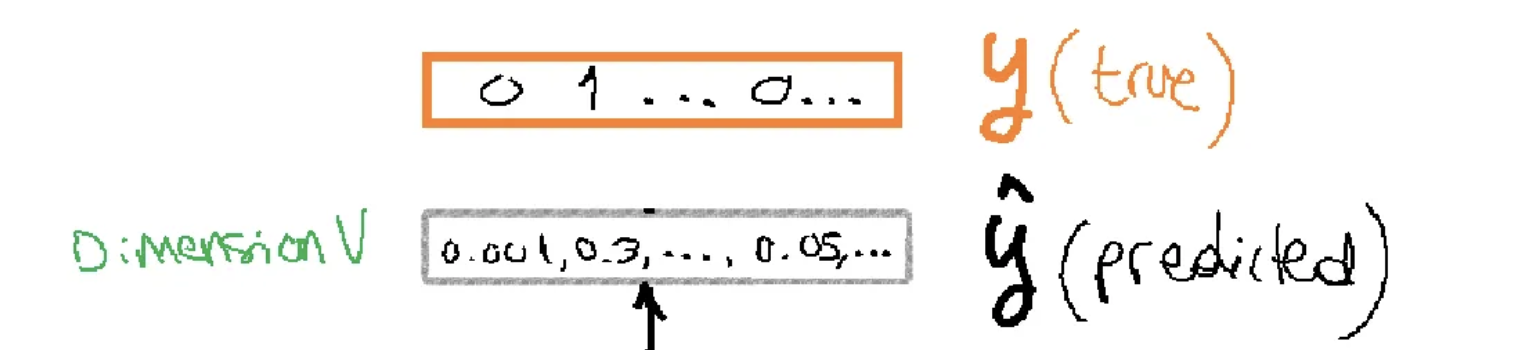 0 1 ... 0... y (true)
Dimension V 0.001, 0.3, ..., 0.05, ... ŷ (predicted)